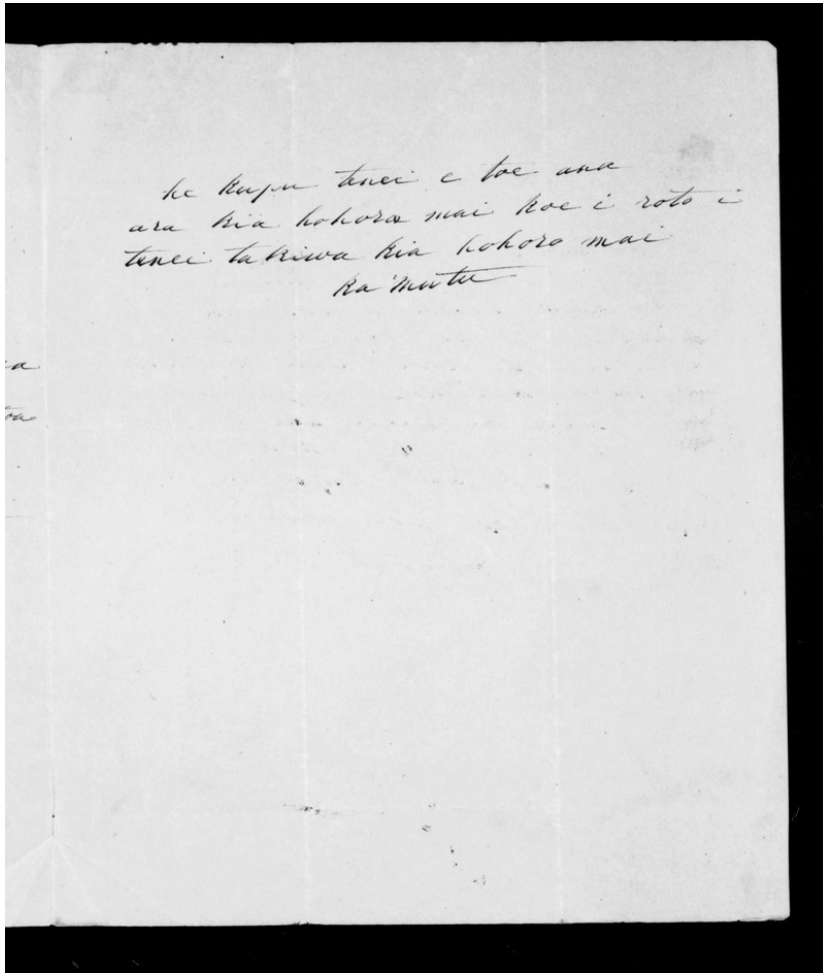 he kupu tenei e toe ana
ara kia hohoro mai koe i roto i
tenei takiwa kia hohoro mai
ka mutu